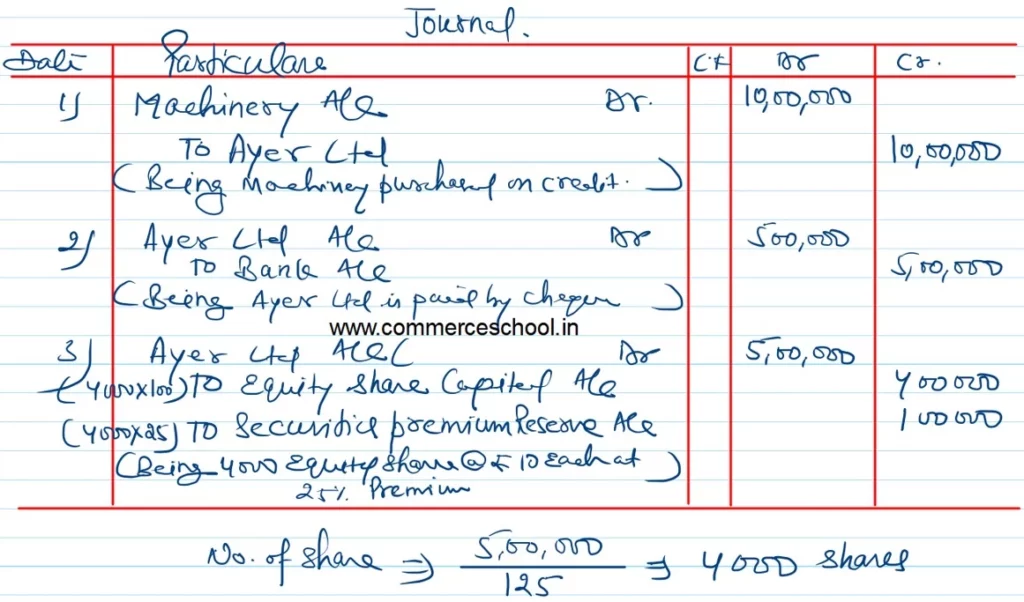 Journal.
Date Particulars C.F Dr Cr.
1) Machinery A/c Dr. 10,00,000
To Ayer Ltd 10,00,000
(Being Machinery purchased on credit.)
2) Ayer Ltd A/c Dr 500,000
To Bank A/c 5,00,000
(Being Ayer Ltd is paid by cheque)
www.commerceschool.in
3) Ayer Ltd A/c Dr 5,00,000
(4000x100) To Equity Share Capital A/c 400000
(4000x25) To Securities premium Reserve A/c 100000
(Being 4000 Equity Share @ ₹ 10 Each at
25% Premium)
No. of share ⇒ 5,00,000
125
⇒ 4000 shares